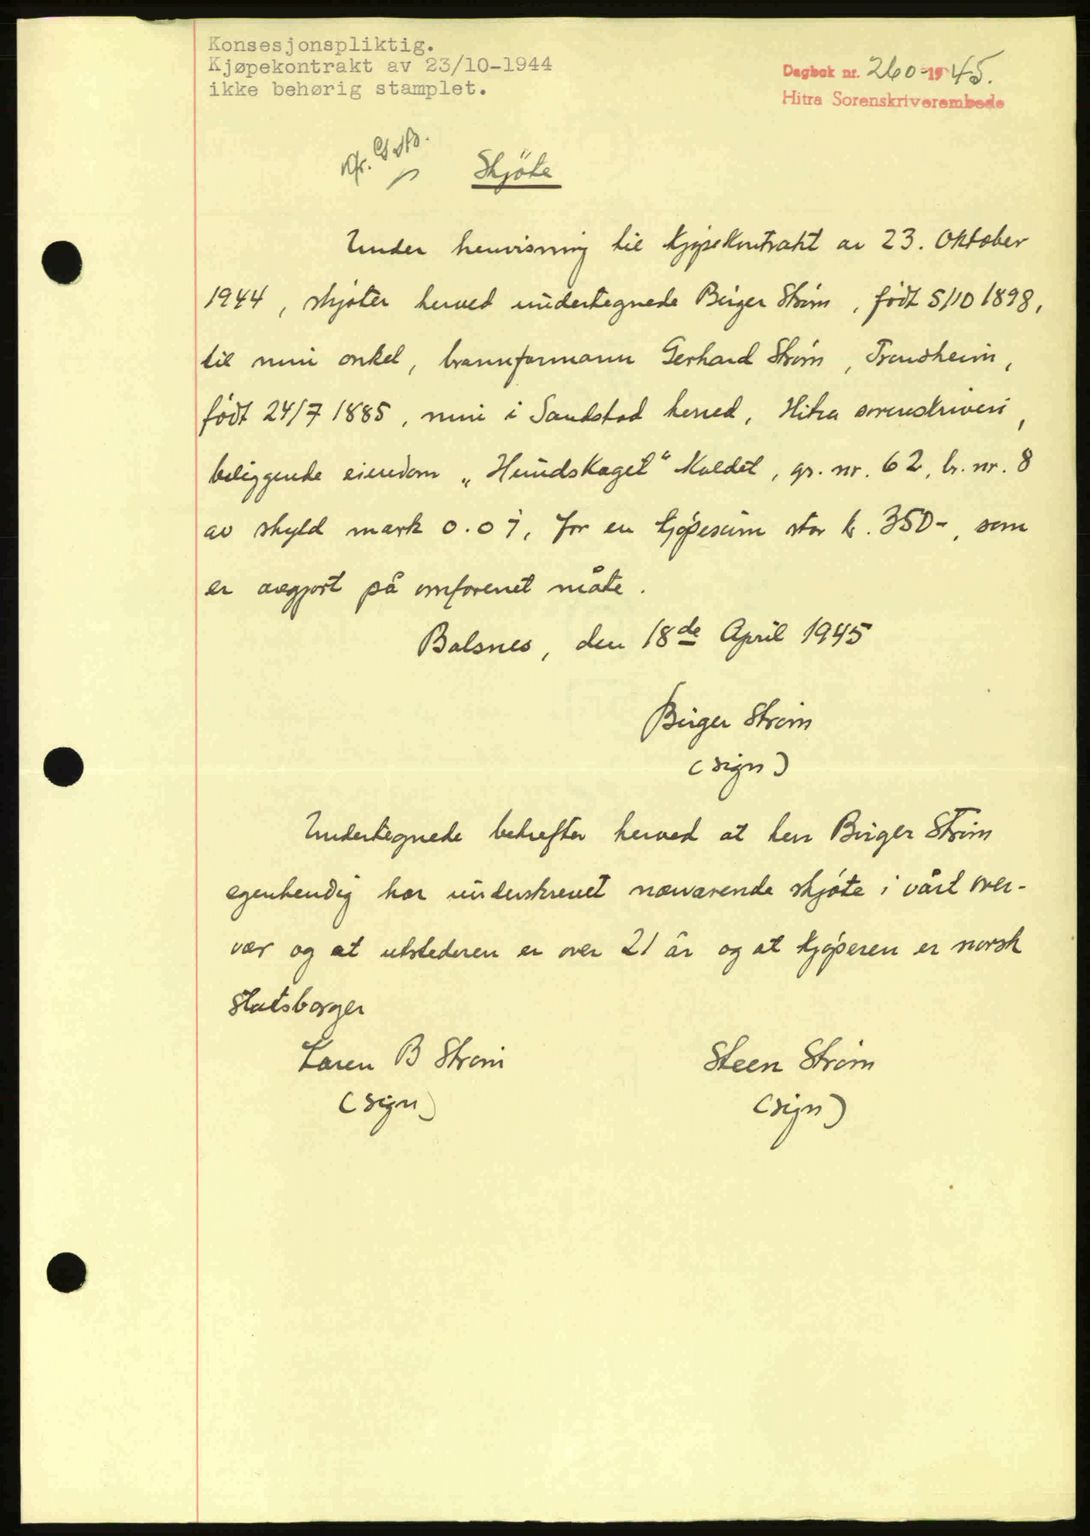 Konsesjonspliktig.
Kjøpekontrakt av 23/10-1944
ikke behørig stamplet.
Dagbok nr. 260-1945.
Hitra Sorenskriverembede
Skjöte
Under henvisning til Kjøpekontrakt av 23. Oktober
1944, skjøter herved undertegnede Birger Strøm, født 5/10 1898,
til min onkel, brannformann Gerhard Strøm, Trondheim,
født 24/7 1885, min i Sandstad herred, Hitra sorenskriveri,
beliggende eiendom „Hundskaget" kaldet, gr. nr. 62, br. nr. 8
av skyld mark 0.07, for en kjøpesum stor kr. 350-, som
er avgjort på omforenet måte.
Balsnes, den 18de April 1945
Birger Strøm
(sign)
Undertegnede bekrefter herved at herr Birger Strøm
egenhendig har underskrevet nærværende skjøte i vårt over-
vær og at utstederen er over 21 år og at kjøperen er norsk
statsborger
Karen B Strøm
(sign)
Steen Strøm
(sign)